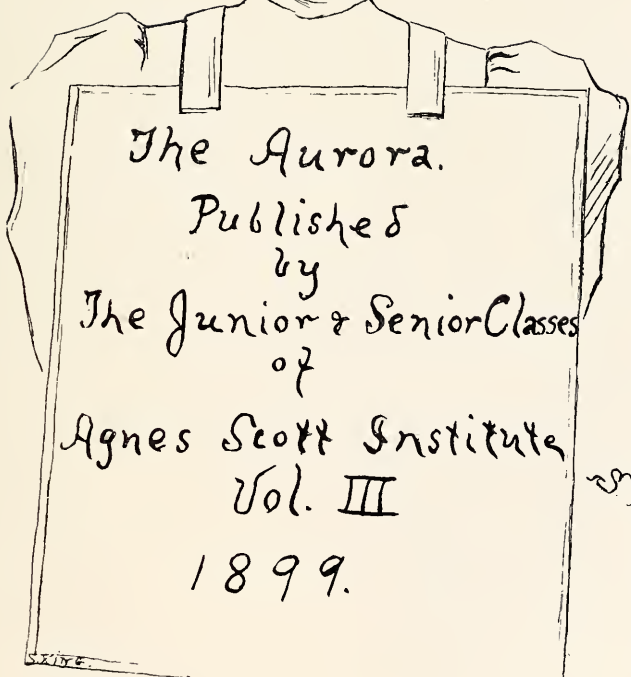 The Aurora.
Published
by
The Junior & Senior Classes
of
Agnes Scott Institute
Vol. III
1899.
S. King.